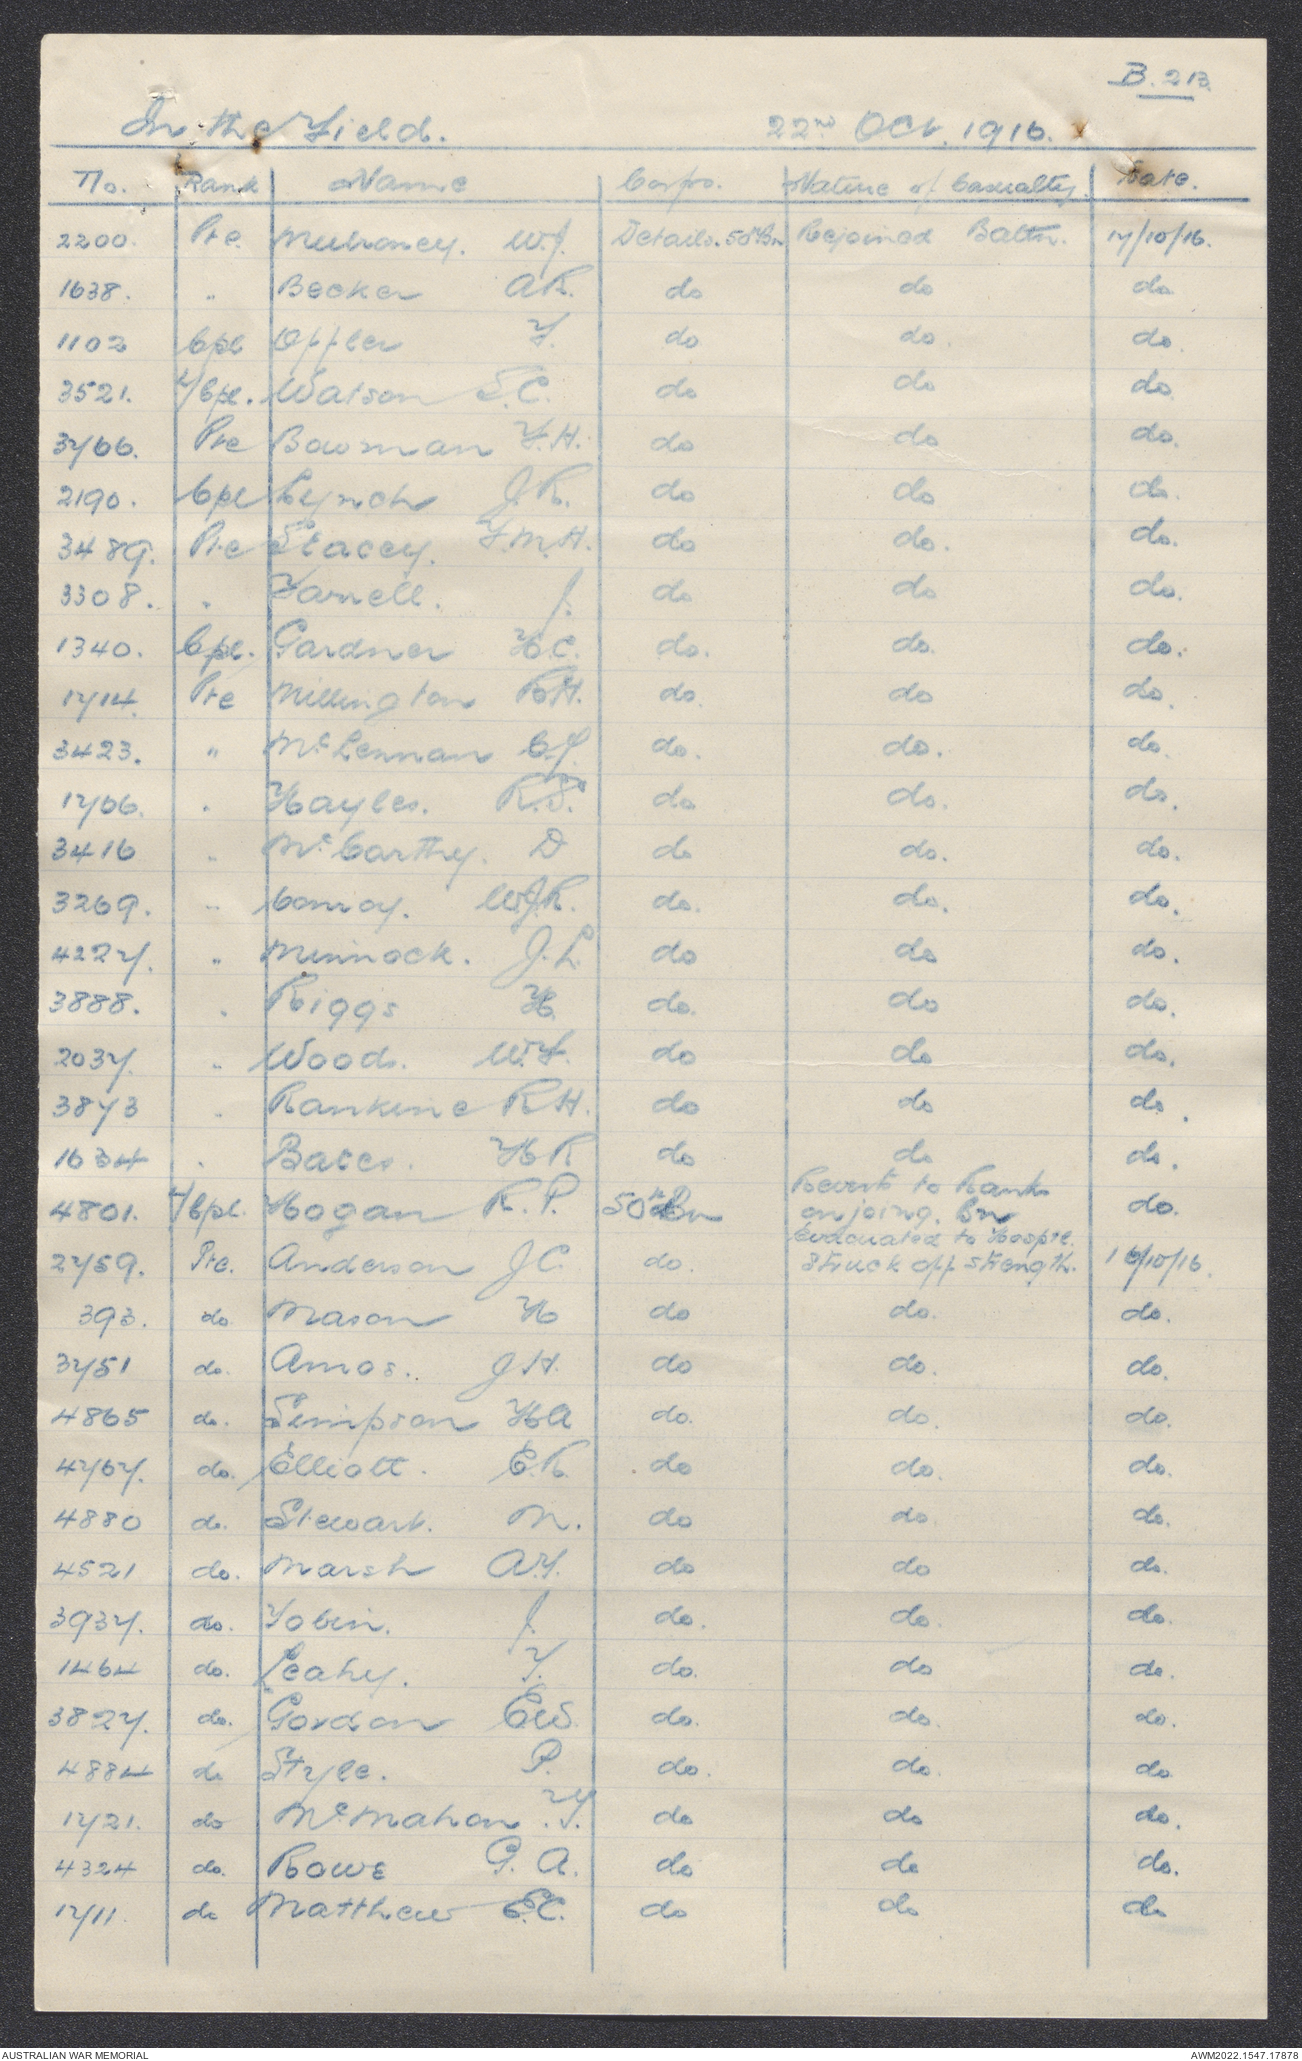 B.213.
In the Field. 22nd Oct. 1916.
No. Rank Name Corps. Nature of Casualty. Date.
2200. Pte. Mulroney. W.J. Details. 50th Bn Rejoined Battn. 17/10/16.
1638. " Becker A.R. do do do
1102 Cpl Offler F. do do. do.
3521. L/Cpl. Watson S.C. do do do
3766. Pte Bowman F.H. do do do.
2190. Cpl Lynch J.R. do do do.
3489. Pte Stacey. F.M.H. do do. do.
3308. " Farnell. J. do do do.
1340. Cpl. Gardner H.C. do. do. do.
1714. Pte Millington R.H. do. do do.
3423. " McLennan C.J. do. do. do.
1766. " Hayles. R.S. do do. do.
3416 " McCarthy. D do do. do.
3269. " Conroy. W.J.R. do. do. do.
4227. " Minnock. J.L. do do do.
3888. " Riggs H. do. do do.
2037. " Woods. W.F. do do do.
3873 " Rankine R.H. do do do.
1634 " Bates. H R do do do.
4801. L/Cpl. Hogan R.P. 50th Bn Reverts to Ranks do.
on joing. Bn
Evacuated to Hospl.
2759. Pte. Anderson J C. do. Struck off strength. 16/10/16.
393. do Mason H do do. do.
3751 do. Amos. J H. do do. do.
4865 do. Simpson H A do. do. do.
4767. do. Elliott. E.R. do do. do.
4880 do. Stewart. M. do do. do.
4521 do. Marsh A.F. do do do.
3937. do. Tobin. J. do. do. do.
1464 do. Leahy. T. do. do do.
3827. do. Gordon E.W. do. do. do.
4884 do Style. P. do. do. do
1721. do McMahon. T. do do do.
4324 do. Rowe G. A. do do do.
1711. do Matthew E.C. do do do
AUSTRALIAN WAR MEMORIAL AWM2022.1547.17878